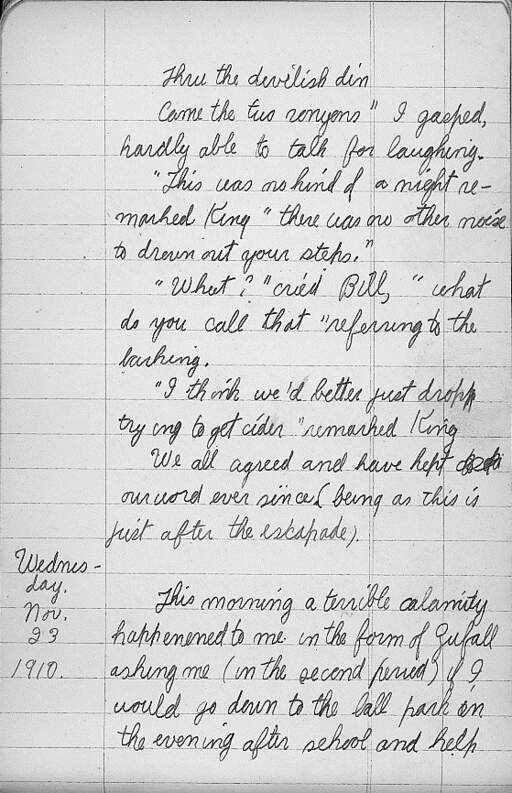 Thru the devilish din
Came the two ronyons" I gasped,
hardly able to talk for laughing.
"This was no kind of a night re-
marked King "there was no other noise
to drown out your steps."
"What? "cried Bill, "what
do you call that "referring to the
barking.
"I think we'd better just dropp
trying to get cider "remarked King
We all agreed and have kept
our word ever since (being as this is
just after the escapade).
Wednes-
day.
Nov.
23
1910.
This morning a terrible calamity
happenened to me in the form of Gufall
asking me (in the second period) if I
would go down to the ball park in
the evening after school and help